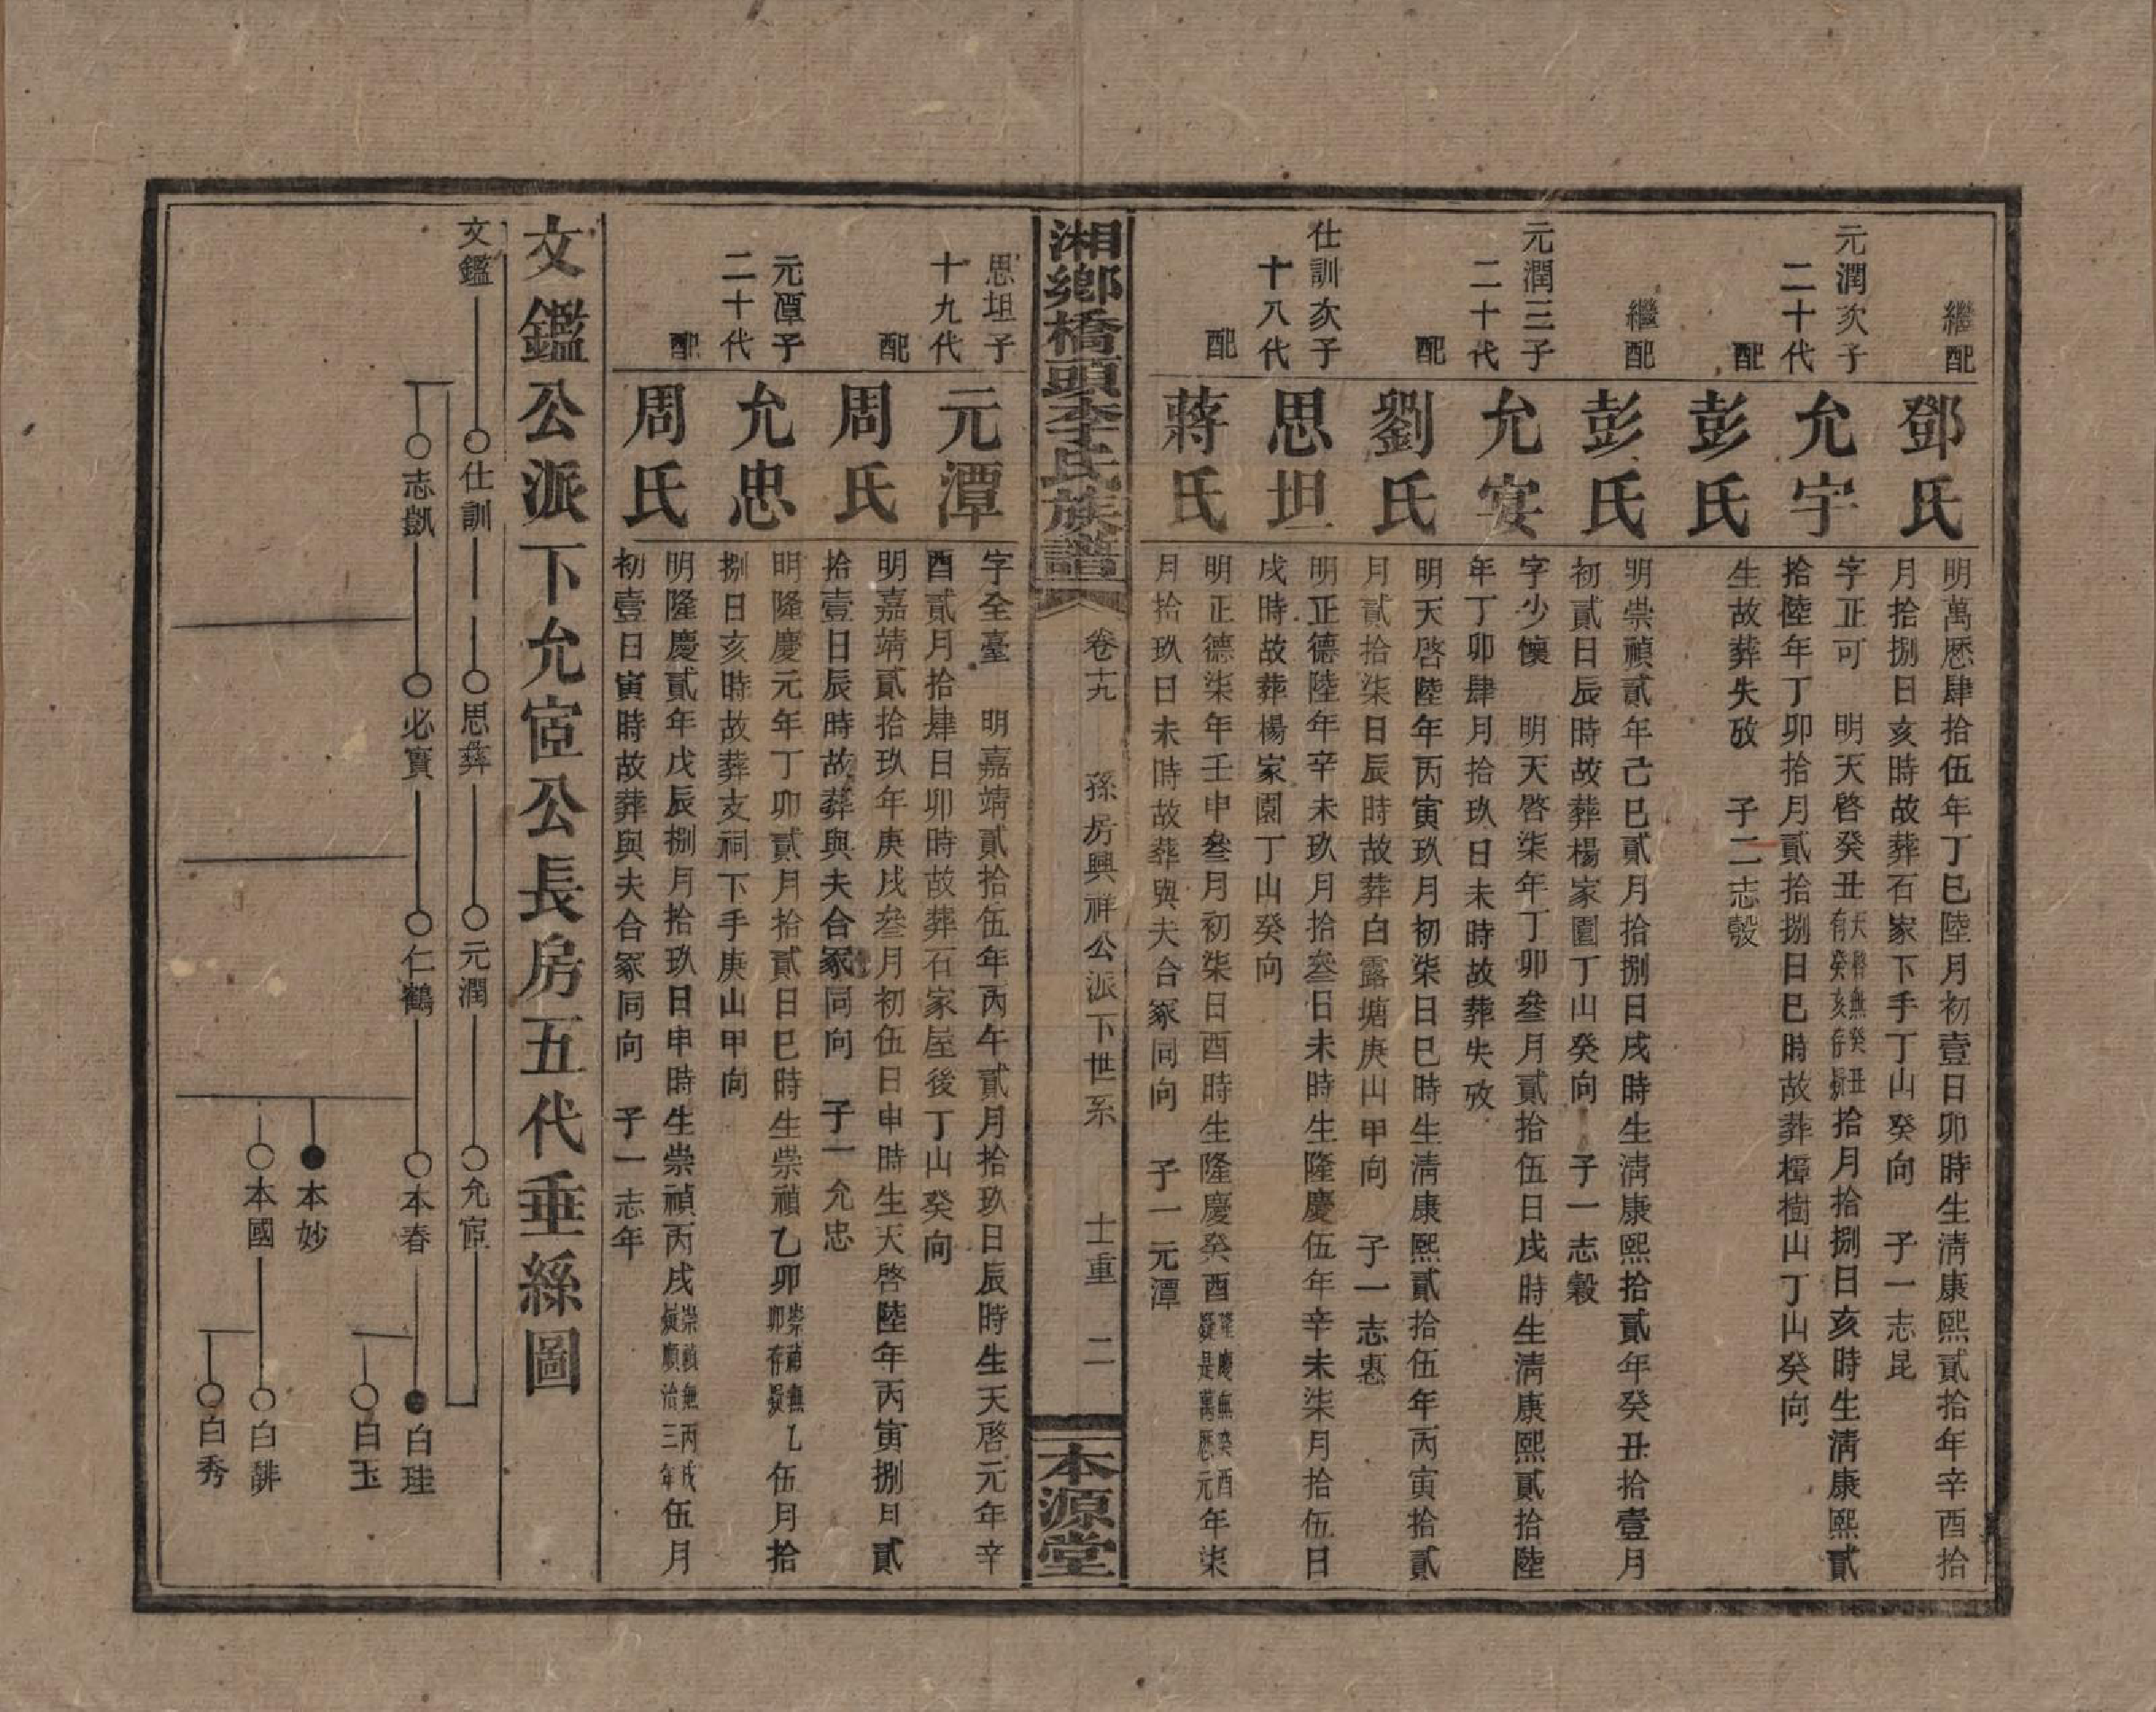 繼配
鄧氏
明萬厯肆拾伍年丁巳陸月初壹日卯時生清康熙貳拾年辛酉拾
月拾捌日亥時故葬石家下手丁山癸向　子一志昆
元潤次子
二十代
允宇
字正可　明天啓癸丑天啓無癸丑有癸亥存疑拾月拾捌日亥時生清康熙貳
拾陸年丁卯拾月貳拾捌日巳時故葬樟樹山丁山癸向
配
彭氏
生故葬失攷　子二志彀
繼配
彭氏
明崇禎貳年己巳貳月拾捌日戌時生清康熙拾貳年癸丑拾壹月
初貳日辰時故葬楊家園丁山癸向　子一志穀
元潤三子
二十代
允安
字少懷　明天啓柒年丁卯叄月貳拾伍日戌時生清康熙貳拾陸
年丁卯肆月拾玖日未時故葬失攷
配
劉氏
明天啓陸年丙寅玖月初柒日巳時生清康熙貳拾伍年丙寅拾貳
月貳拾柒日辰時故葬白露塘庚山甲向　子一志惠
仕訓次子
十八代
思坦
明正德陸年辛未玖月拾叄日未時生隆慶伍年辛未柒月拾伍日
戌時故葬楊家園丁山癸向
配
蔣氏
明正德柒年壬申叄月初柒日酉時生隆慶癸酉隆慶無癸酉疑是萬厯元年柒
月拾玖日未時故葬與夫合冢同向　子一元潭
湘鄉橋頭李氏族譜
卷十九　孫房興祥公派下世系　士重　二
本源堂
思坦子
十九代
元潭
字全臺　明嘉靖貳拾伍年丙午貳月拾玖日辰時生天啓元年辛
酉貳月拾肆日卯時故葬石家屋後丁山癸向
配
周氏
明嘉靖貳拾玖年庚戌叄月初伍日申時生天啓陸年丙寅捌月貳
拾壹日辰時故葬與夫合冢同向　子一允忠
元潭子
二十代
允忠
明隆慶元年丁卯貳月拾貳日巳時生崇禎乙卯崇禎無乙卯存疑伍月拾
捌日亥時故葬支祠下手庚山甲向
配
周氏
明隆慶貳年戊辰捌月拾玖日申時生崇禎丙戌崇禎無丙戌疑順治三年伍月
初壹日寅時故葬與夫合冢同向　子一志年
文鑑公派下允宦公長房五代垂絲圖
文鑑　仕訓　思彝　元潤　允宦
志凱　必寶　仁鶴　本春　白珪
白玉
本妙
本國　白
白秀